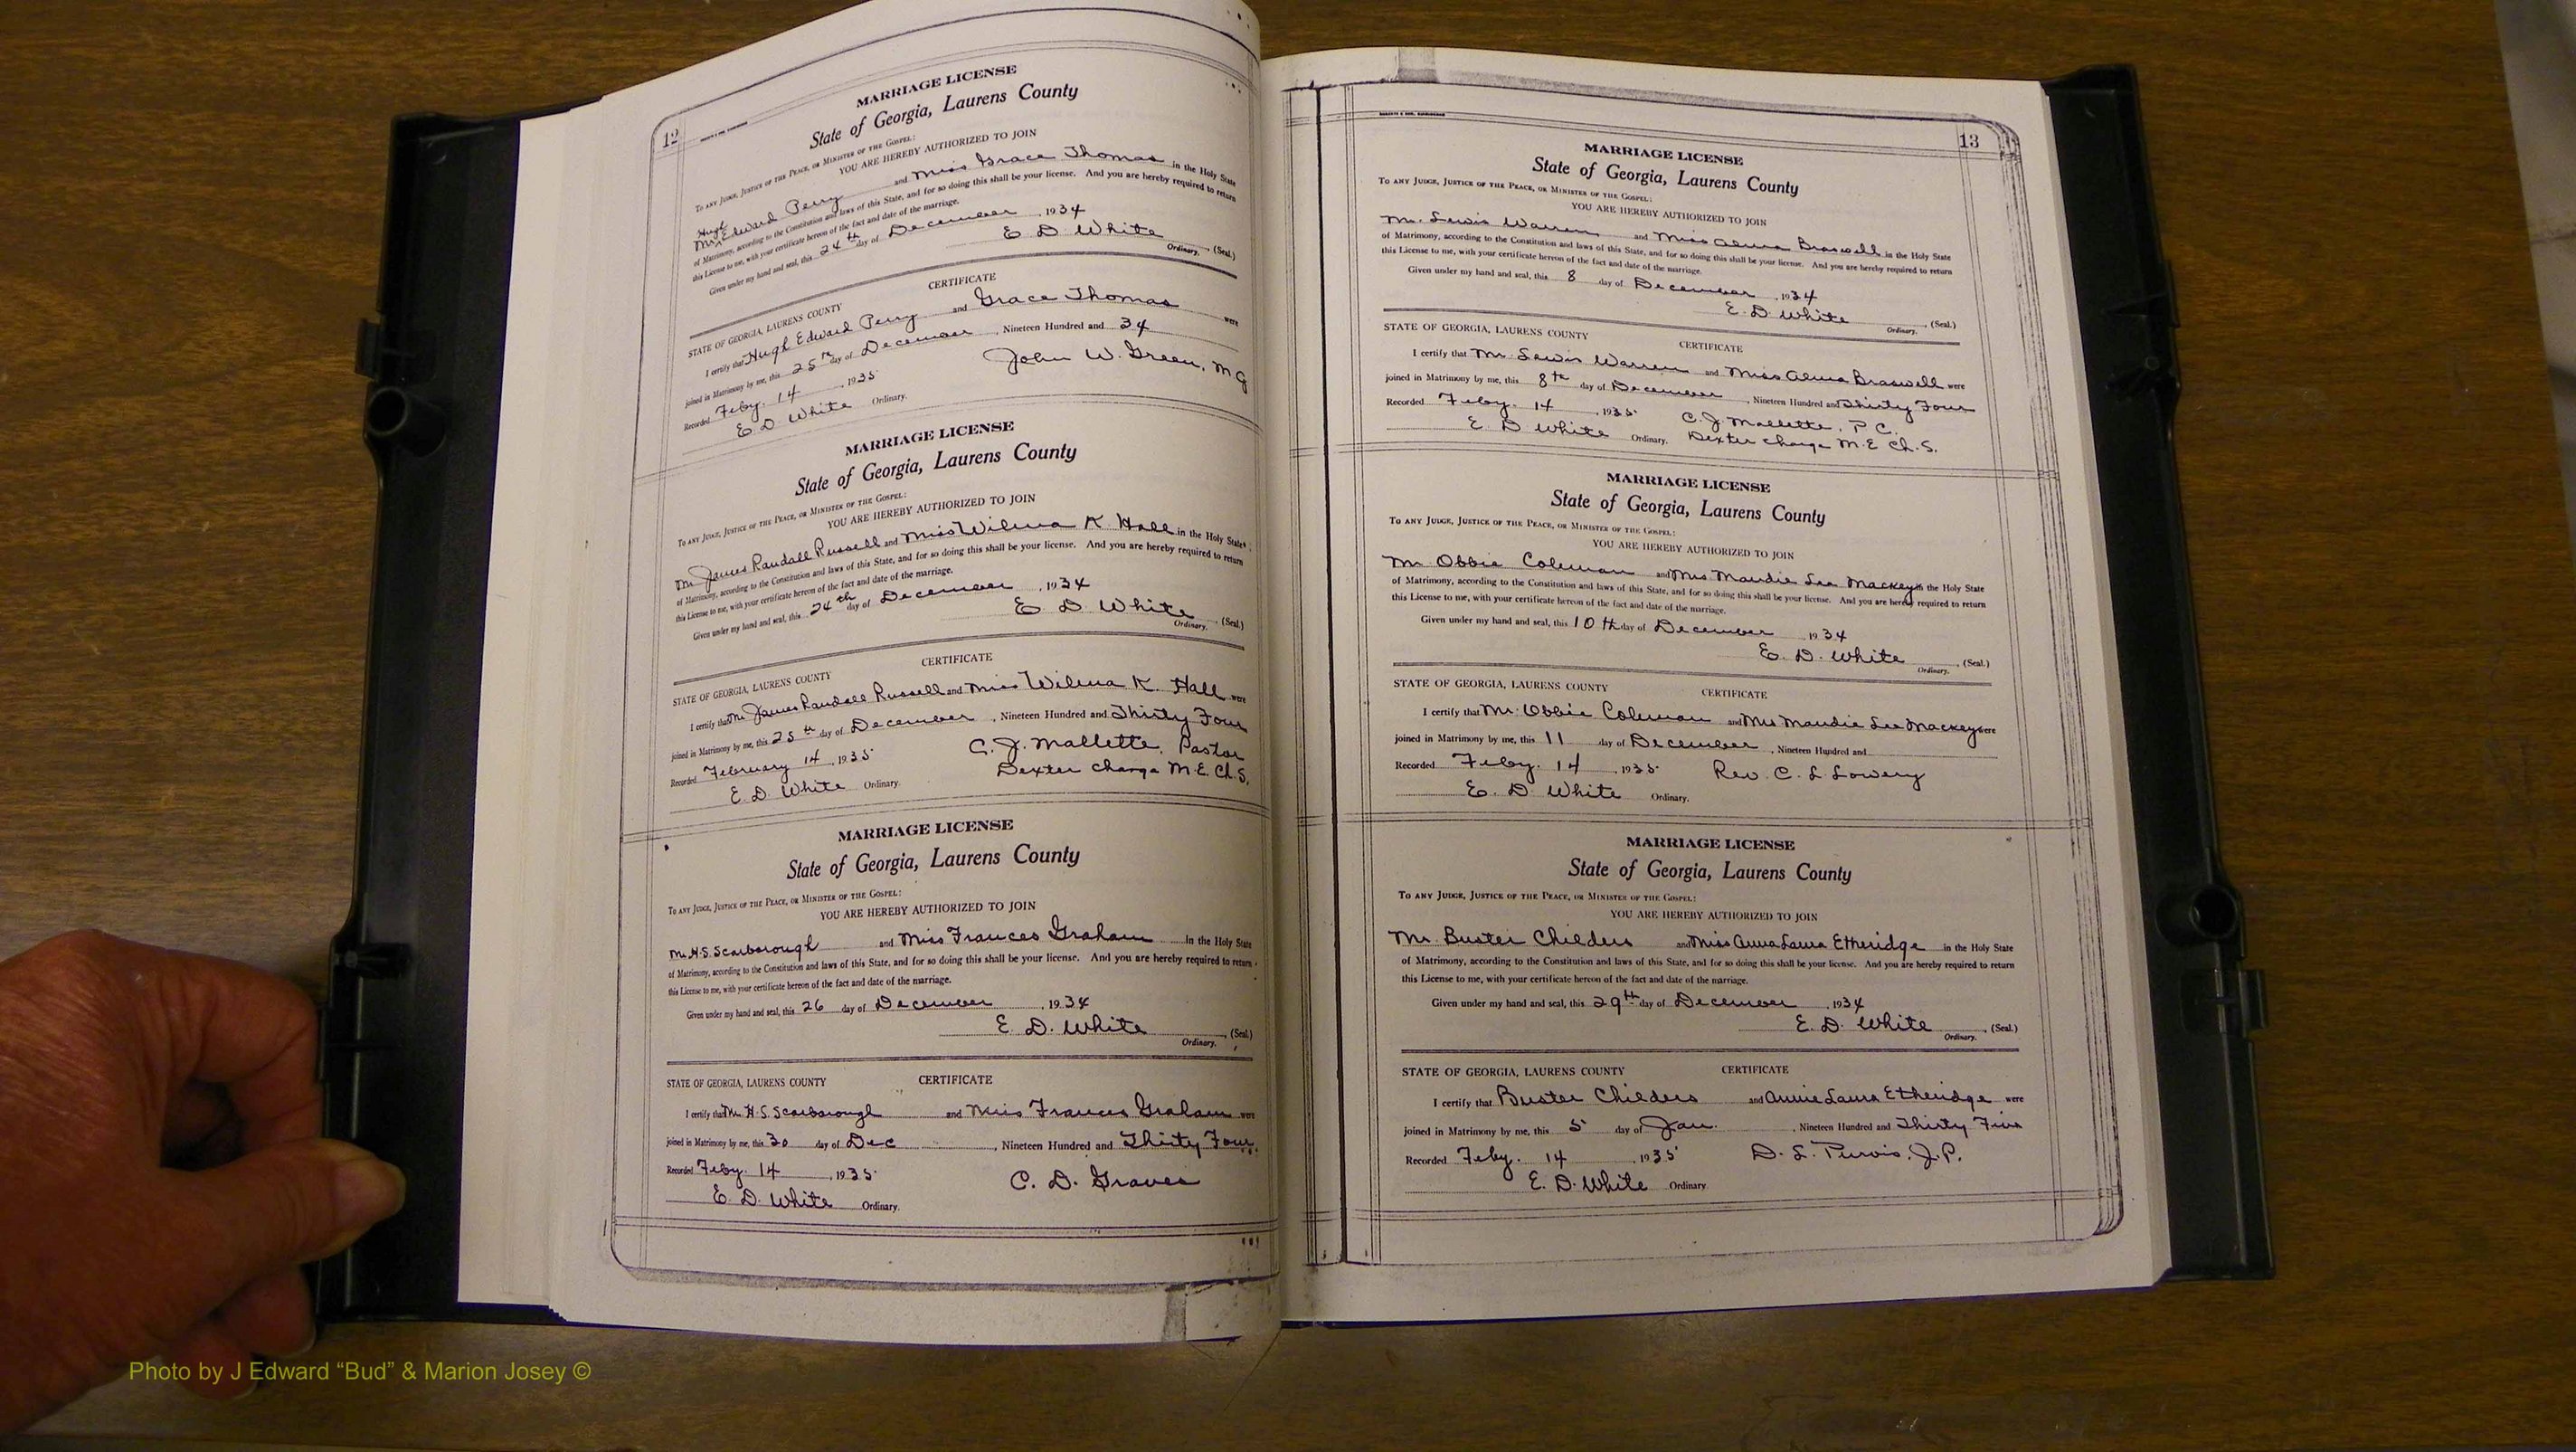 12
MARRIAGE LICENSE
State of Georgia, Laurens County
To any Judge, Justice of the Peace, or Minister of the Gospel:
YOU ARE HEREBY AUTHORIZED TO JOIN
Mr. Hugh Edward Perry and Miss Grace Thomas in the Holy State
of Matrimony, according to the Constitution and laws of this State, and for so doing this shall be your license. And you are hereby required to return
this License to me, with your certificate hereon of the fact and date of the marriage.
Given under my hand and seal, this 24th day of December, 1934
E D White (Seal.)
Ordinary.
CERTIFICATE
STATE OF GEORGIA, LAURENS COUNTY
I certify that Hugh Edward Perry and Grace Thomas were
joined in Matrimony by me, this 25th day of December, Nineteen Hundred and 34
Recorded Feby. 14, 1935 John W. Green, M G
E D White Ordinary.
MARRIAGE LICENSE
State of Georgia, Laurens County
To any Judge, Justice of the Peace, or Minister of the Gospel:
YOU ARE HEREBY AUTHORIZED TO JOIN
Mr James Randall Russell and Miss Wilma K. Hall in the Holy State
of Matrimony, according to the Constitution and laws of this State, and for so doing this shall be your license. And you are hereby required to return
this License to me, with your certificate hereon of the fact and date of the marriage.
Given under my hand and seal, this 24th day of December, 1934
E D White (Seal.)
Ordinary.
CERTIFICATE
STATE OF GEORGIA, LAURENS COUNTY
I certify that Mr James Randall Russell and Miss Wilma K. Hall were
joined in Matrimony by me, this 25th day of December, Nineteen Hundred and Thirty Four
Recorded February 14, 1935 C. J. Mallette, Pastor
E. D. White Ordinary. Dexter charge M.E. Ch. S.
MARRIAGE LICENSE
State of Georgia, Laurens County
To any Judge, Justice of the Peace, or Minister of the Gospel:
YOU ARE HEREBY AUTHORIZED TO JOIN
Mr. H. S. Scarborough and Miss Frances Graham in the Holy State
of Matrimony, according to the Constitution and laws of this State, and for so doing this shall be your license. And you are hereby required to return
this License to me, with your certificate hereon of the fact and date of the marriage.
Given under my hand and seal, this 26 day of December, 1934
E. D. White (Seal.)
Ordinary.
STATE OF GEORGIA, LAURENS COUNTY CERTIFICATE
I certify that Mr. H. S. Scarborough and Miss Frances Graham were
joined in Matrimony by me, this 30 day of Dec, Nineteen Hundred and Thirty Four.
Recorded Feby. 14, 1935 C. D. Graves
E. D. White Ordinary.
13
MARRIAGE LICENSE
State of Georgia, Laurens County
To any Judge, Justice of the Peace, or Minister of the Gospel:
YOU ARE HEREBY AUTHORIZED TO JOIN
Mr. Lewis Warren and Miss Alma Braswell in the Holy State
of Matrimony, according to the Constitution and laws of this State, and for so doing this shall be your license. And you are hereby required to return
this License to me, with your certificate hereon of the fact and date of the marriage.
Given under my hand and seal, this 8 day of December, 1934
E. D. White (Seal.)
Ordinary.
STATE OF GEORGIA, LAURENS COUNTY CERTIFICATE
I certify that Mr. Lewis Warren and Miss Alma Braswell were
joined in Matrimony by me, this 8th day of December, Nineteen Hundred and Thirty Four
Recorded Feby. 14, 1935 C. J. Mallette, P. C.
E. D White Ordinary. Dexter charge M. E Ch. S.
MARRIAGE LICENSE
State of Georgia, Laurens County
To any Judge, Justice of the Peace, or Minister of the Gospel:
YOU ARE HEREBY AUTHORIZED TO JOIN
Mr. Obbie Coleman and Mrs Maudie Lee Mackey in the Holy State
of Matrimony, according to the Constitution and laws of this State, and for so doing this shall be your license. And you are hereby required to return
this License to me, with your certificate hereon of the fact and date of the marriage.
Given under my hand and seal, this 10th day of December, 1934
E. D. White (Seal.)
Ordinary.
STATE OF GEORGIA, LAURENS COUNTY CERTIFICATE
I certify that Mr. Obbie Coleman and Mrs Maudie Lee Mackey were
joined in Matrimony by me, this 11 day of December, Nineteen Hundred and
Recorded Feby. 14, 1935 Rev. C. L. Lowery
E. D White Ordinary.
MARRIAGE LICENSE
State of Georgia, Laurens County
To any Judge, Justice of the Peace, or Minister of the Gospel:
YOU ARE HEREBY AUTHORIZED TO JOIN
Mr. Buster Childers and Miss Anna Laura Etheridge in the Holy State
of Matrimony, according to the Constitution and laws of this State, and for so doing this shall be your license. And you are hereby required to return
this License to me, with your certificate hereon of the fact and date of the marriage.
Given under my hand and seal, this 29th day of December, 1934
E. D. White (Seal.)
Ordinary.
STATE OF GEORGIA, LAURENS COUNTY CERTIFICATE
I certify that Buster Childers and Annie Laura Etheridge were
joined in Matrimony by me, this 5 day of Jan., Nineteen Hundred and Thirty Five
Recorded Feby. 14, 1935 D. L. Purvis, J. P.
E. D. White Ordinary.
Photo by J Edward “Bud” & Marion Josey ©